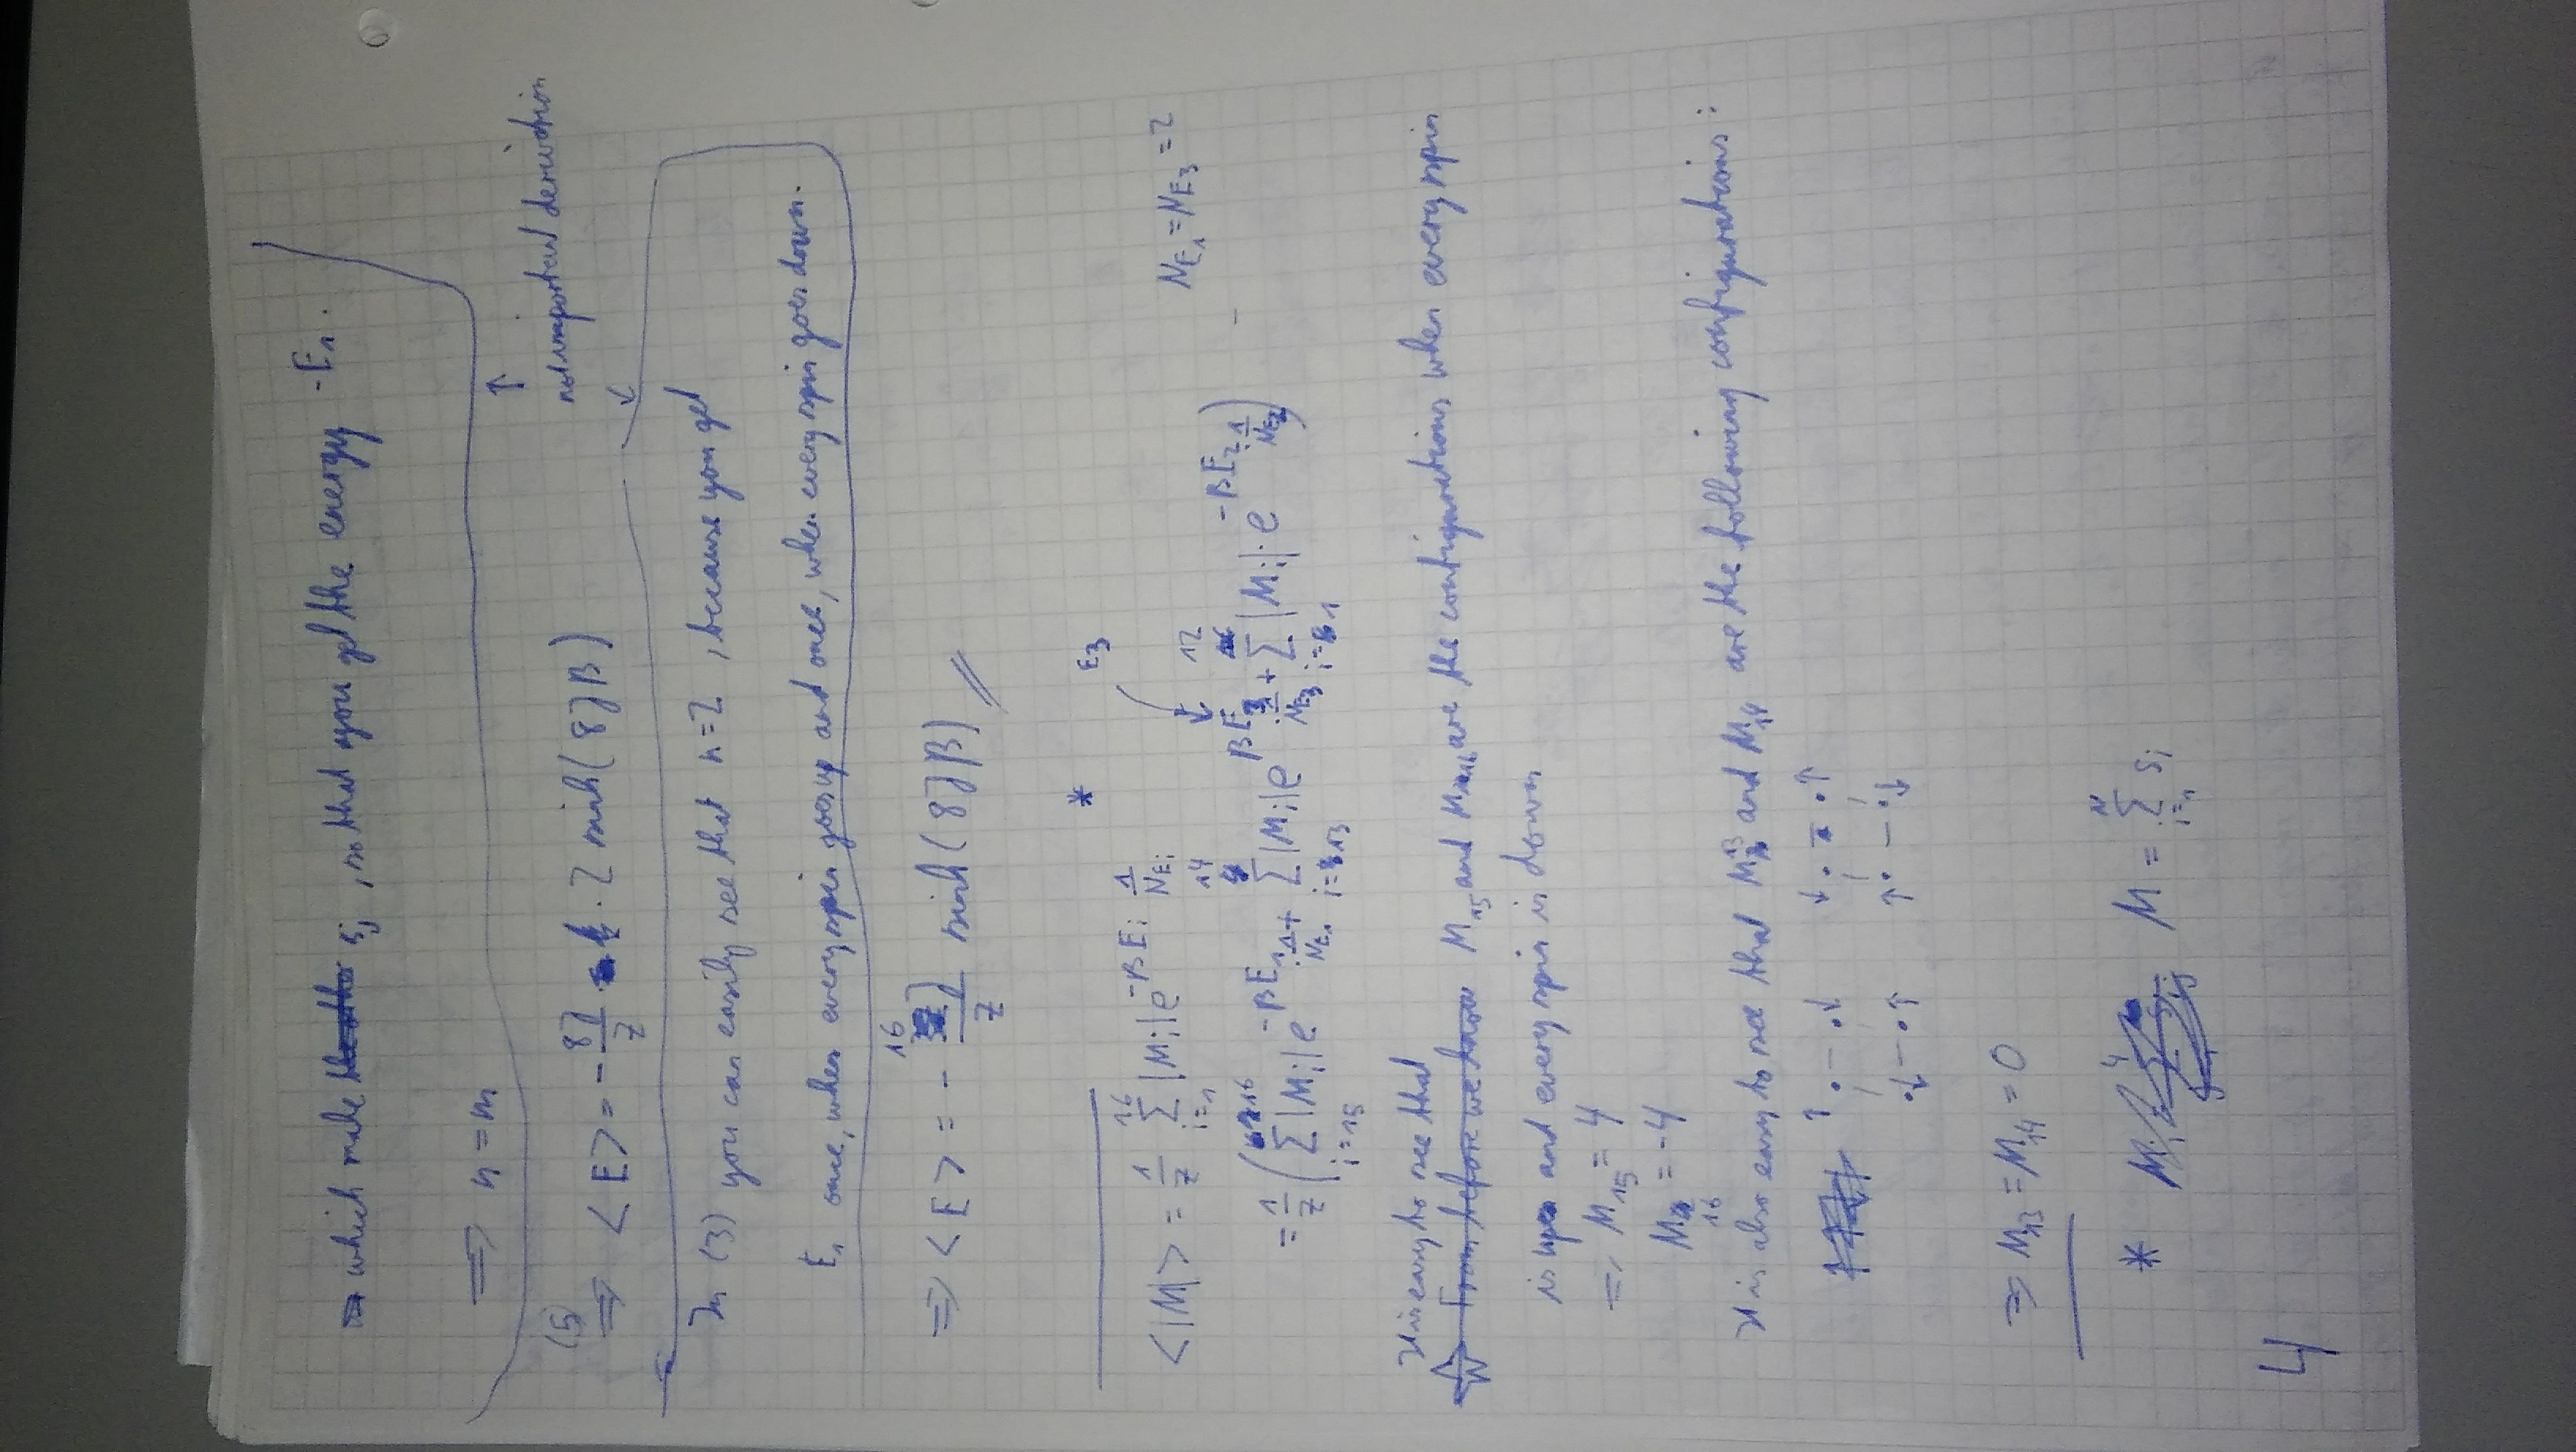 which make s_j , so that you get the energy -E_1 .
⟹ n = m
↑
not important derivation
↓
(5)
⟹ <E> = - 8J/Z · 2 sinh(8Jβ)
In (3) you can easily see that n=2 , because you get
E_1 once, when every spin goes up and once, when every spin goes down.
⟹ <E> = - 16J/Z sinh(8Jβ) //
* E_3
<|M|> = 1/Z Σ_{i=1}^{16} |M_i| e^{-βE_i} 1/N_{E_i}
N_{E_1} = N_{E_3} = 2
= 1/Z ( Σ_{i=15}^{16} |M_i| e^{-βE_1} · 1/N_{E_1} + Σ_{i=13}^{14} |M_i| e^{βE_3} · 1/N_{E_3} + Σ_{i=1}^{12} |M_i| · e^{-βE_2} · 1/N_{E_2} )
It is easy to see that
From before we know M_15 and M_16 are the configurations when every spin
is up and every spin is down
⟹ M_15 = 4
M_16 = -4
It is also easy to see that M_13 and M_14 are the following configurations :
↑ . - . ↓ ↓ . - . ↑
. ↓ - . ↑ ↑ . - . ↓
⟹ M_13 = M_14 = 0
* M = Σ_{i=1}^{N} s_i
4